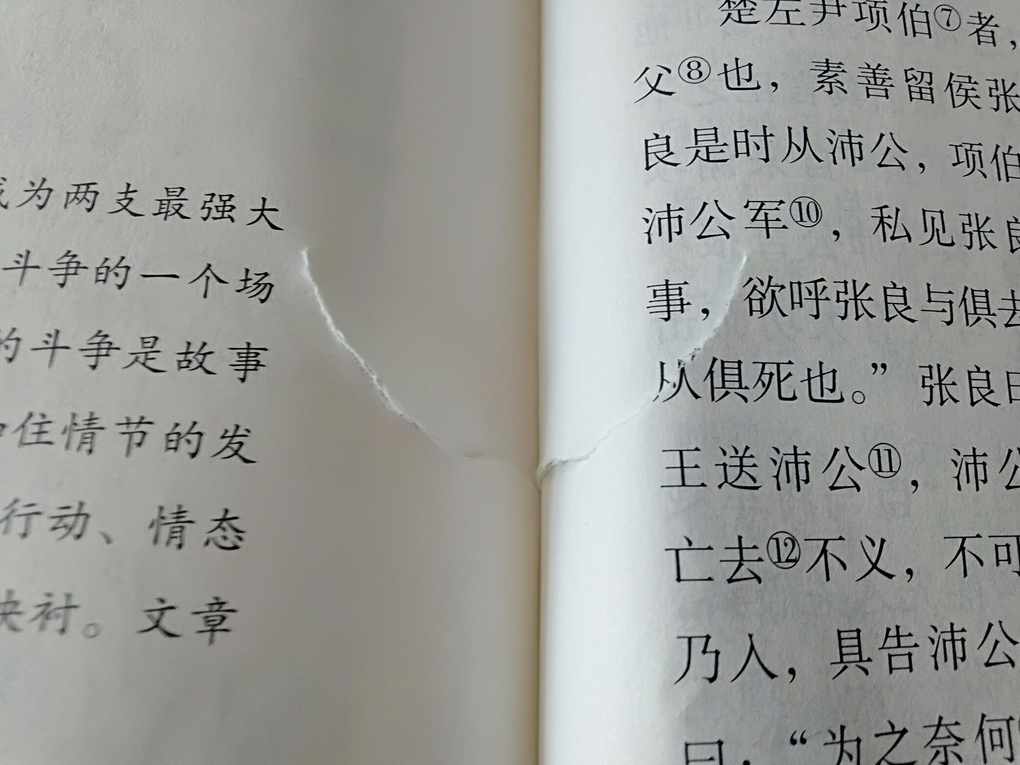 为两支最强大
斗争的一个场
的斗争是故事
住情节的发
行动、情态
衬。文章
楚左尹项伯⑦者，
父⑧也，素善留侯张
良是时从沛公，项伯
沛公军⑩，私见张良
事，欲呼张良与俱去
从俱死也。”张良曰
王送沛公⑪，沛公
亡去⑫不义，不可
乃入，具告沛公
曰：“为之奈何